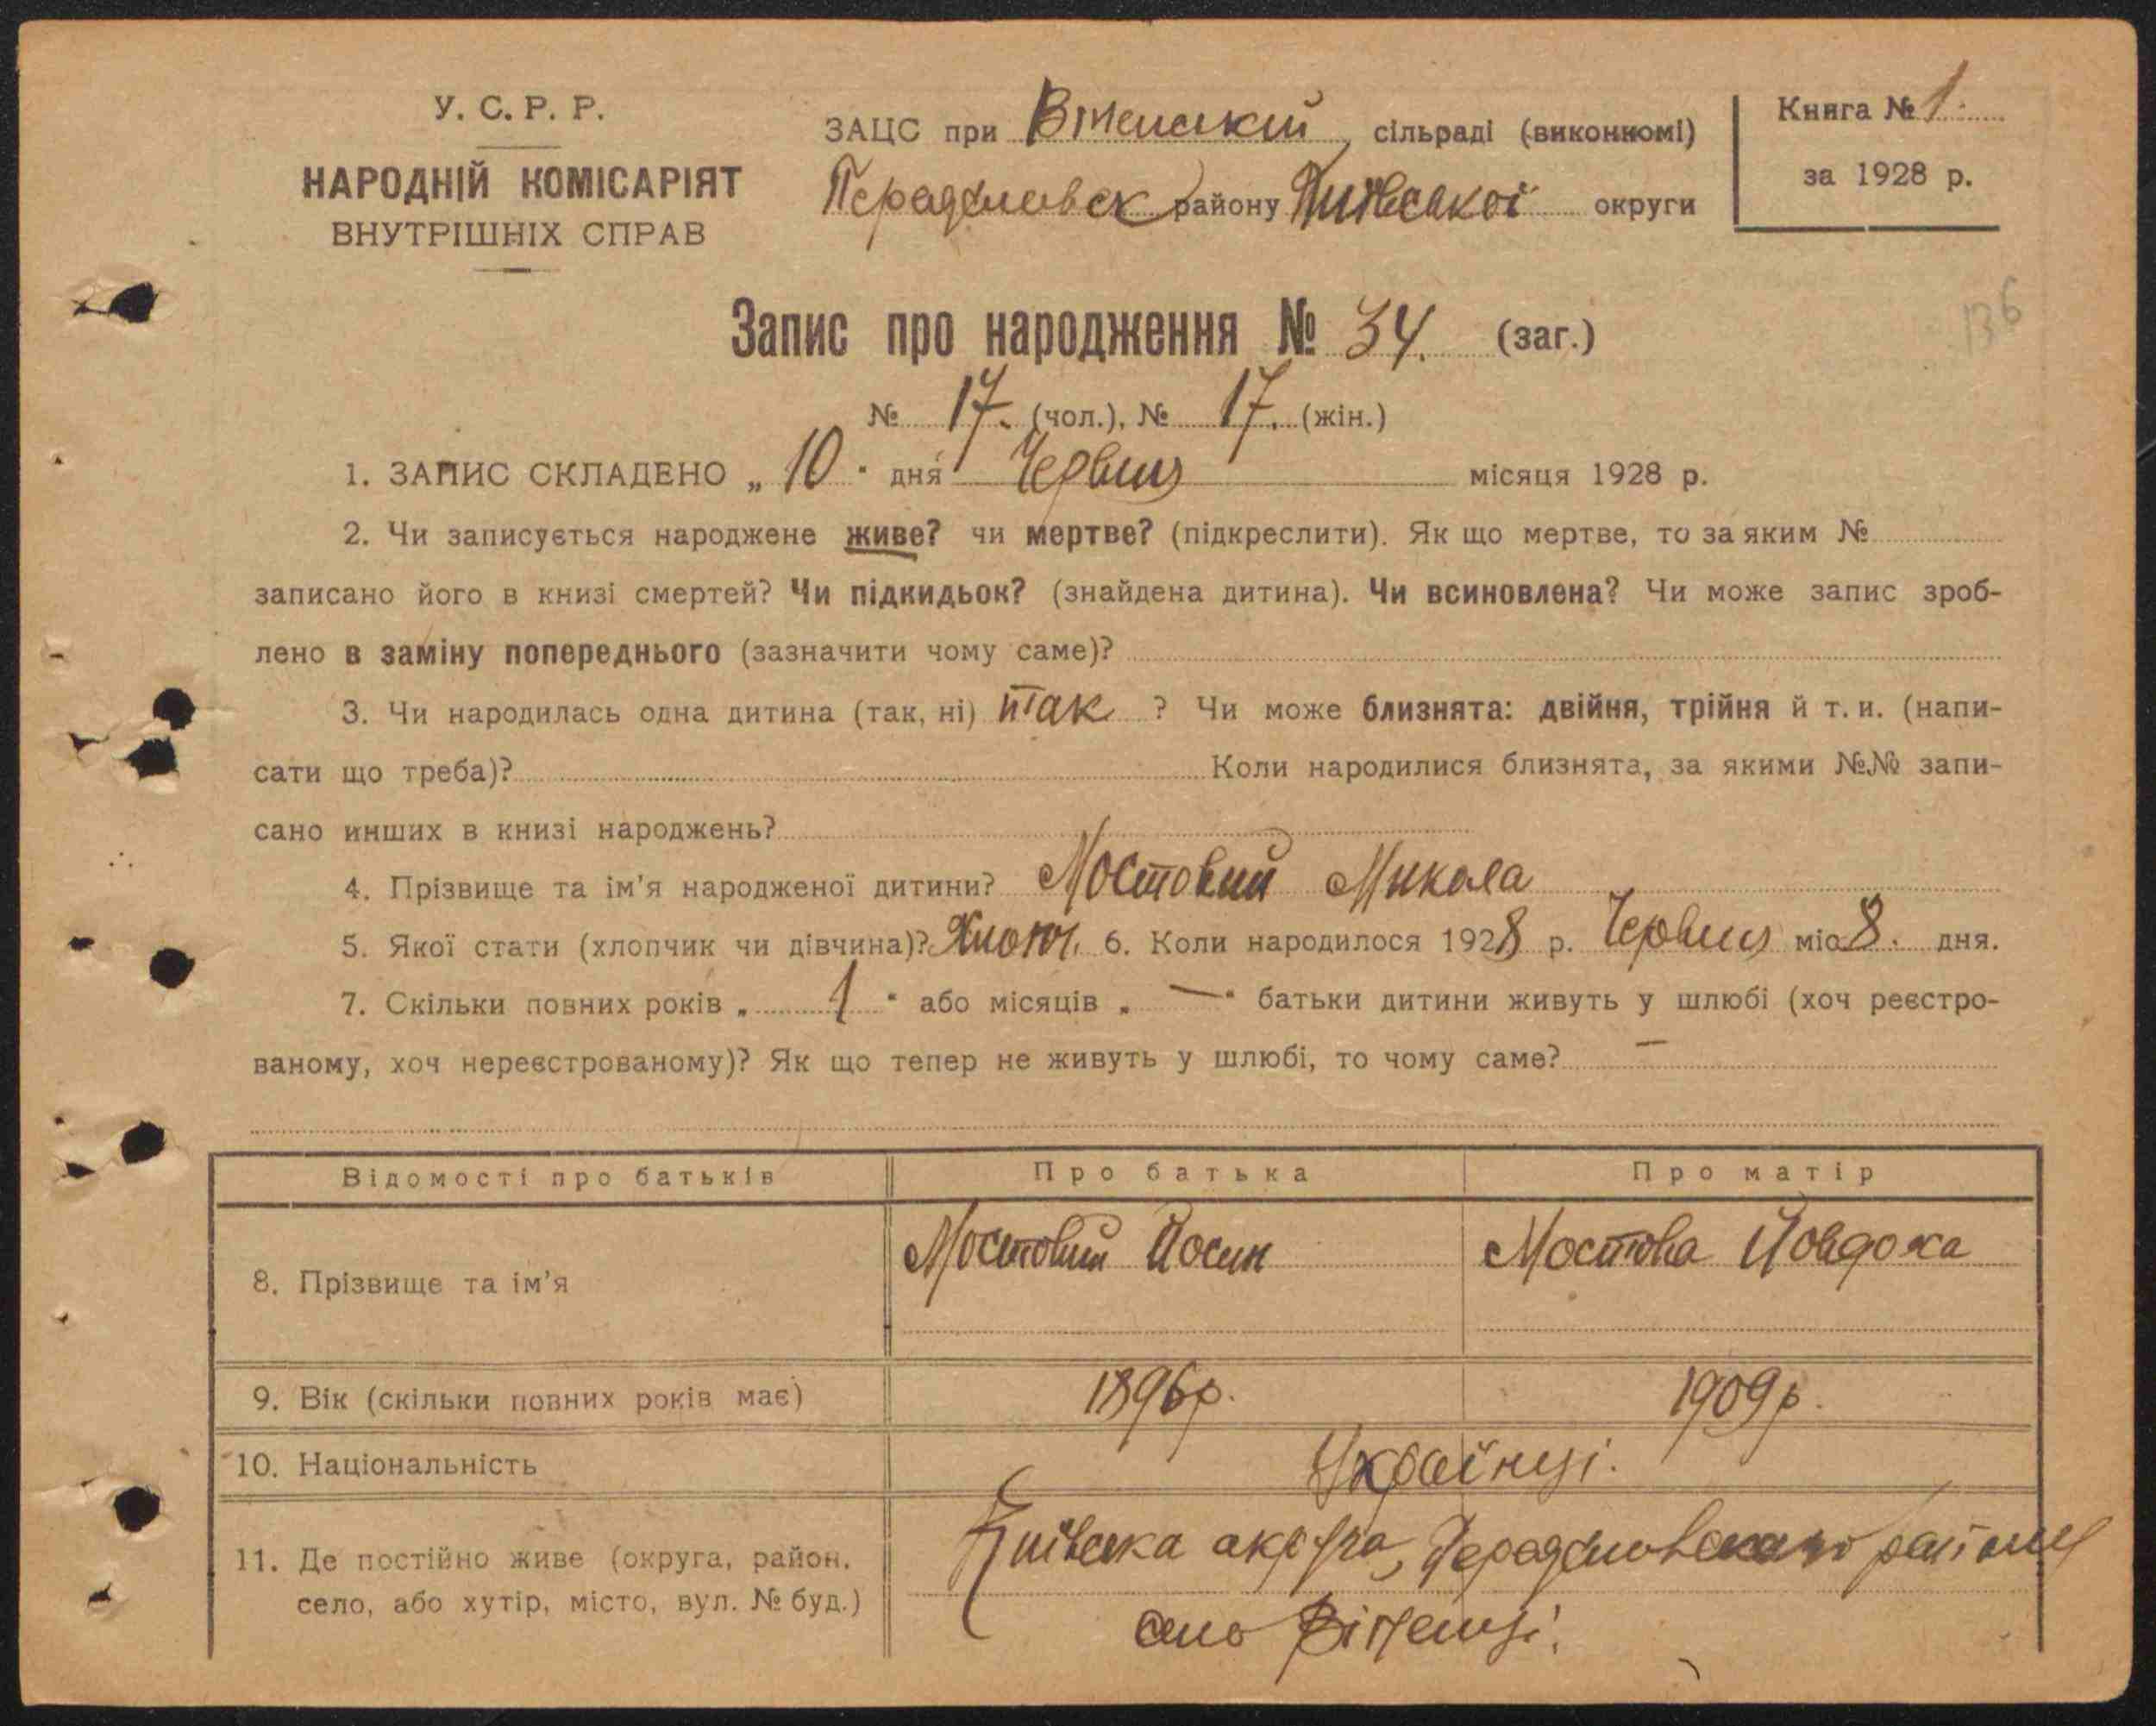 У. С. Р. Р.
НАРОДНІЙ КОМІСАРІЯТ
ВНУТРІШНІХ СПРАВ
ЗАЦС при сільраді (виконкомі)
району Київської округи
Книга № 1.
за 1928 р.
136
Запис про народження № 34. (заг.)
№ 17. (чол.), № 17. (жін.)
1. ЗАПИС СКЛАДЕНО „ 10 " дня Червня місяця 1928 р.
2. Чи записується народжене живе? чи мертве? (підкреслити). Як що мертве, то за яким №
записано його в книзі смертей? Чи підкидьок? (знайдена дитина). Чи всиновлена? Чи може запис зроб-
лено в заміну попереднього (зазначити чому саме)?
3. Чи народилась одна дитина (так, ні) так ? Чи може близнята: двійня, трійня й т. и. (напи-
сати що треба)? Коли народилися близнята, за якими №№ запи-
сано инших в книзі народжень?
4. Прізвище та ім'я народженої дитини? Мостовий Микола
5. Якої стати (хлопчик чи дівчина)? 6. Коли народилося 1928 р. Червня міс 8. дня.
7. Скільки повних років „ 1 " або місяців „ — " батьки дитини живуть у шлюбі (хоч реєстро-
ваному, хоч нереєстрованому)? Як що тепер не живуть у шлюбі, то чому саме? —
Відомості про батьків Про батька Про матір
8. Прізвище та ім'я Мостовий Йосип Мостова Йовдоха
9. Вік (скільки повних років має) 1896р. 1909р.
10. Національність Українці.
11. Де постійно живе (округа, район, Київска округа, району
село, або хутір, місто, вул. № буд.) село Вітенці.